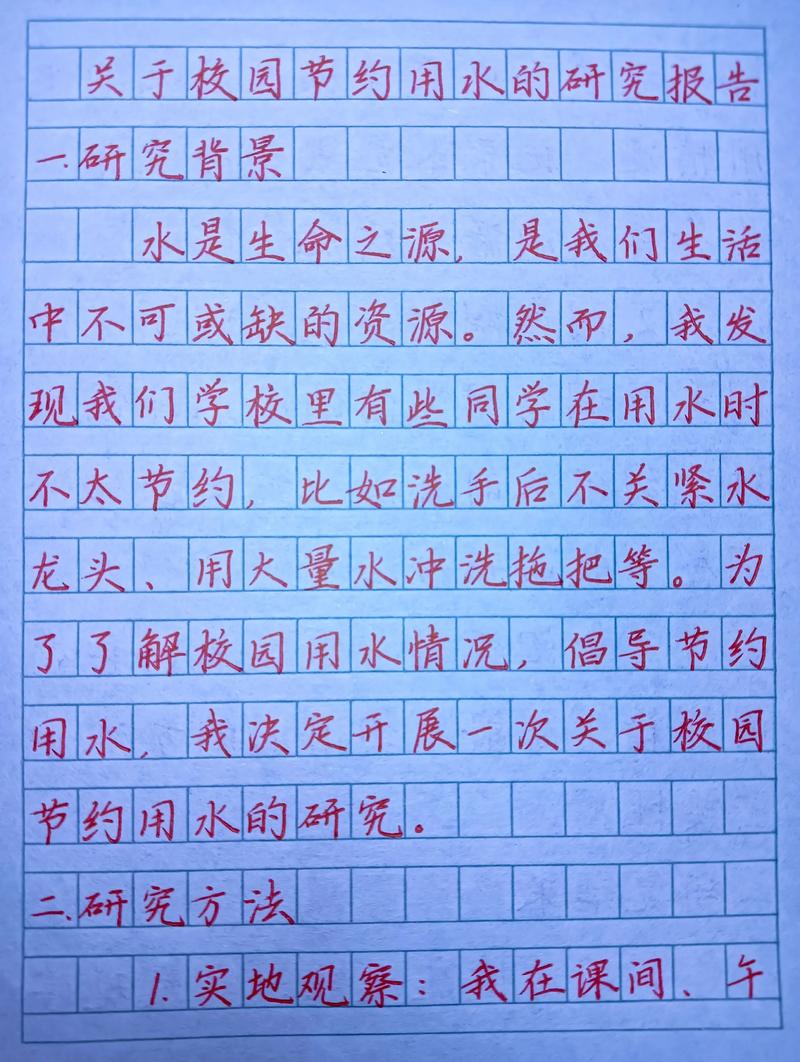 关于校园节约用水的研究报告
一.研究背景
水是生命之源，是我们生活
中不可或缺的资源。然而，我发
现我们学校里有些同学在用水时
不太节约，比如洗手后不关紧水
龙头、用大量水冲洗拖把等。为
了了解校园用水情况，倡导节约
用水，我决定开展一次关于校园
节约用水的研究。
二.研究方法
1.实地观察：我在课间、午